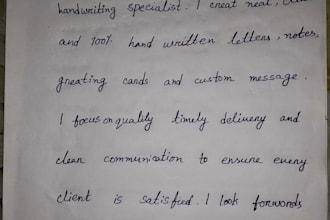 handwriting specialist. I creat neat, clean
and 100% hand written letters, notes,
greating cards and custom message.
I focus on quality timely delivery and
clean communication to ensure every
client is satisfied. I look forwords